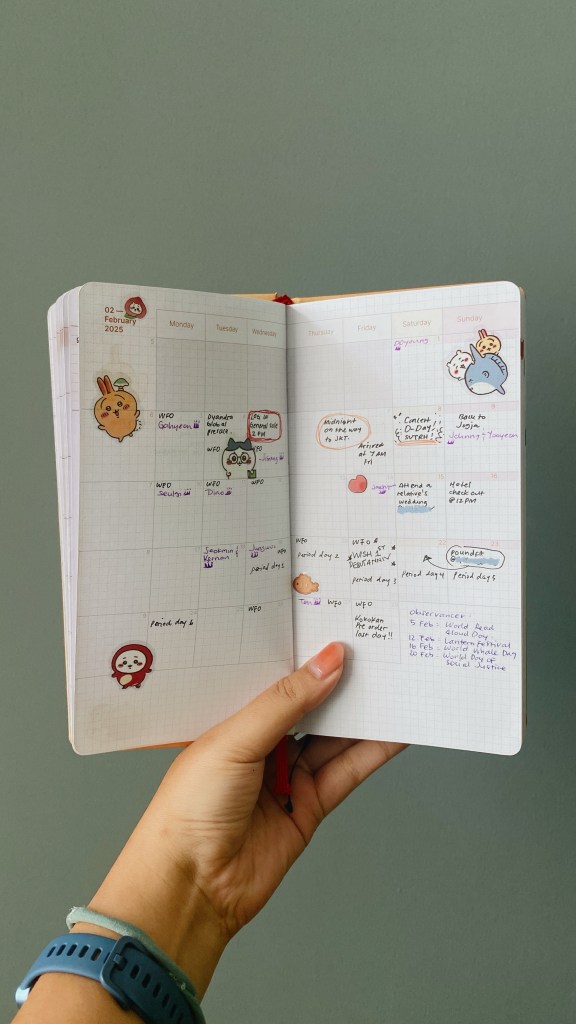 02 —
February
2025
Monday
Tuesday
Wednesday
Thursday
Friday
Saturday
Sunday
Doyoung
WFO
Gahyeon
Global
WFO
2 PM
Midnight
on the way
to JKT.
Arrived
at 7 am
Fri
Concert
D-Day!
Back to
Jogja
Johnny & Yooyeon
WFO
Seulgi
WFO
Dino
WFO
Attend a
relative's
wedding
Hotel
check out
@ 12 PM
Seokmin &
WFO
WFO
period day 2
WFO &
WISH 1st
period day 3
period day 4
period day 5
Period day 6
WFO
WFO
WFO
Pre order
last day!!
Observances:
5 Feb = World Read
Aloud Day
12 Feb = Lantern Festival
16 Feb = World Whale Day
20 Feb = World Day of
Social Justice